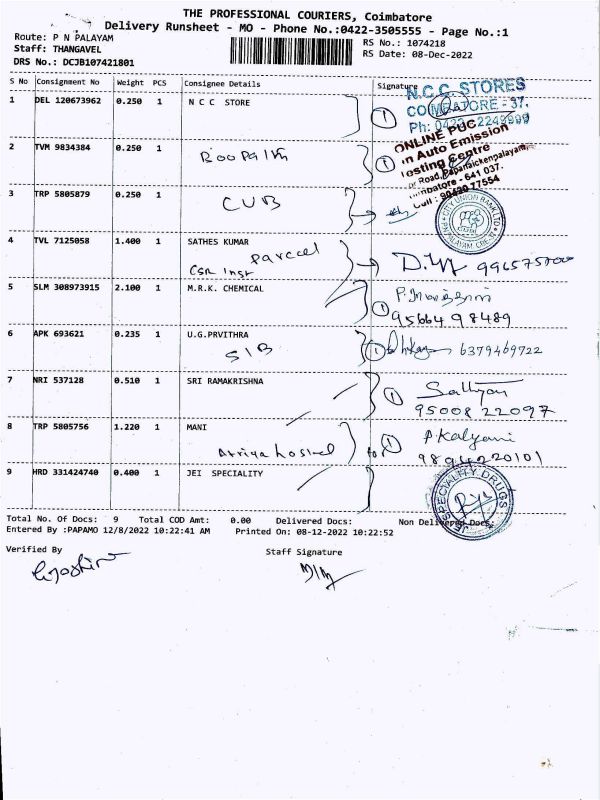 THE PROFESSIONAL COURIERS, Coimbatore
Delivery Runsheet - MO - Phone No.:0422-3505555 - Page No.:1
Route: P N PALAYAM
RS No.: 1074218
Staff: THANGAVEL
RS Date: 08-Dec-2022
DRS No.: DCJB107421801
S No Consignment No Weight PCS Consignee Details Signature
N.C.C. STORES
1 DEL 120673962 0.250 1 N C C STORE 1
COIMBATORE - 37.
Ph: 0422 - 2249999
ONLINE PUC
2 TVM 9834384 0.250 1 1
an Auto Emission
Testing Centre
Road, Papanaickenpalayam,
Coimbatore - 641 037.
3 TRP 5805879 0.250 1
CUB
CITY UNION BANK LTD
4 TVL 7125058 1.400 1 SATHES KUMAR
Parcel
5 SLM 308973915 2.100 1 M.R.K. CHEMICAL
1
95664 98489
6 APK 693621 0.235 1 U.G.PRVITHRA
SIB
1 6379469722
7 NRI 537128 0.510 1 SRI RAMAKRISHNA
1
95008 22097
8 TRP 5805756 1.220 1 MANI
1 P.Kalyani
9894220101
9 HRD 331424740 0.400 1 JEI SPECIALITY
SPECIALITY DRUGS
Total No. Of Docs: 9 Total COD Amt: 0.00 Delivered Docs: Non Delivered Docs:
Entered By :PAPAMO 12/8/2022 10:22:41 AM Printed On: 08-12-2022 10:22:52
Verified By
Staff Signature